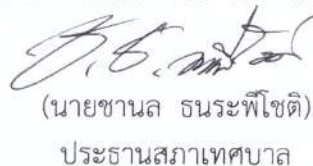 (นายชานล ธนระพีโชติ)
ประธานสภาเทศบาล